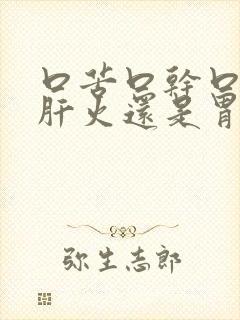 口苦口幹口
肝火還是胃
弥生志郎